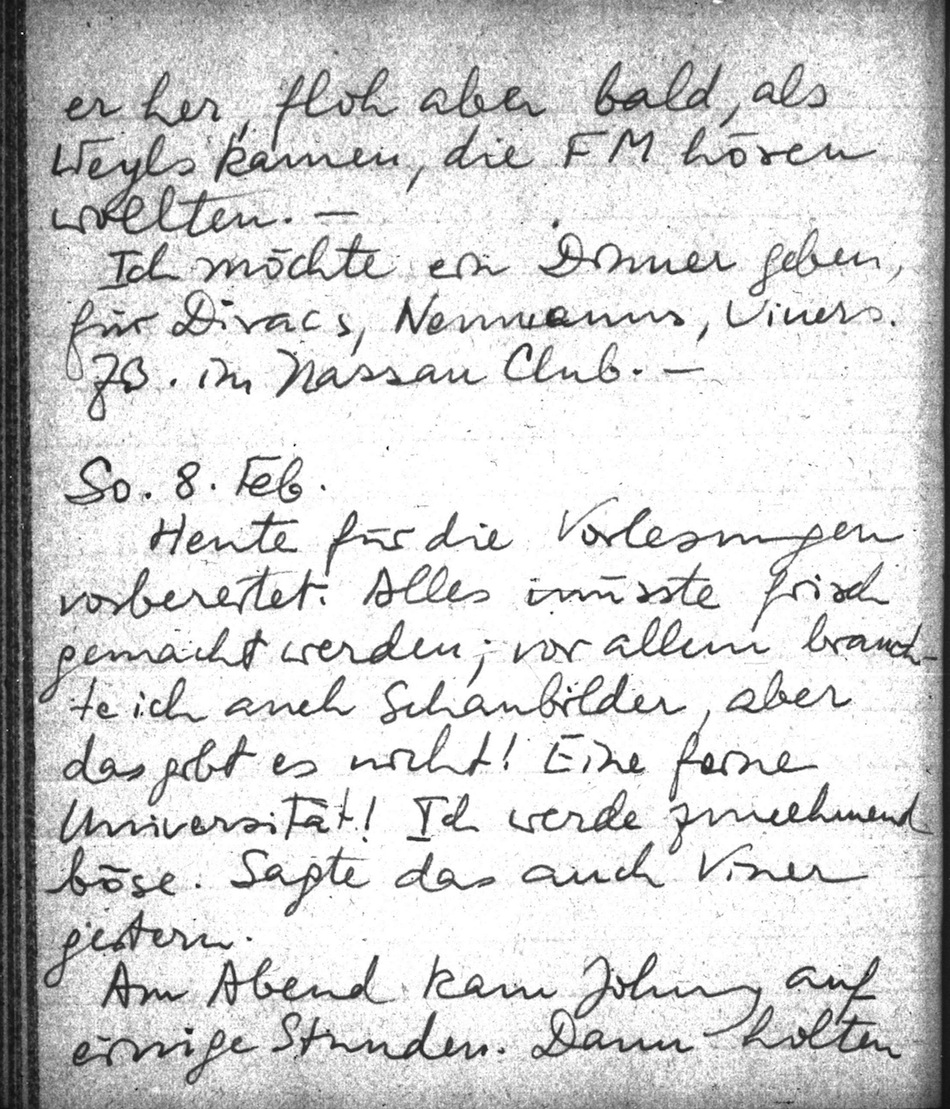 er her, floh aber bald, als
Weyls kamen, die FM hören
wollten. —
Ich möchte ein Dinner geben,
für Diracs, Neumanns, Viners.
ZB. im Nassau Club. —
So. 8. Feb.
Heute für die Vorlesungen
vorbereitet. Alles müsste frisch
gemacht werden; vor allem brauch-
te ich auch Schaubilder, aber
das gibt es nicht! Eine feine
Universität! Ich werde zunehmend
böse. Sagte das auch Viner
gestern.
Am Abend kam Johnny auf
einige Stunden. Dann holten